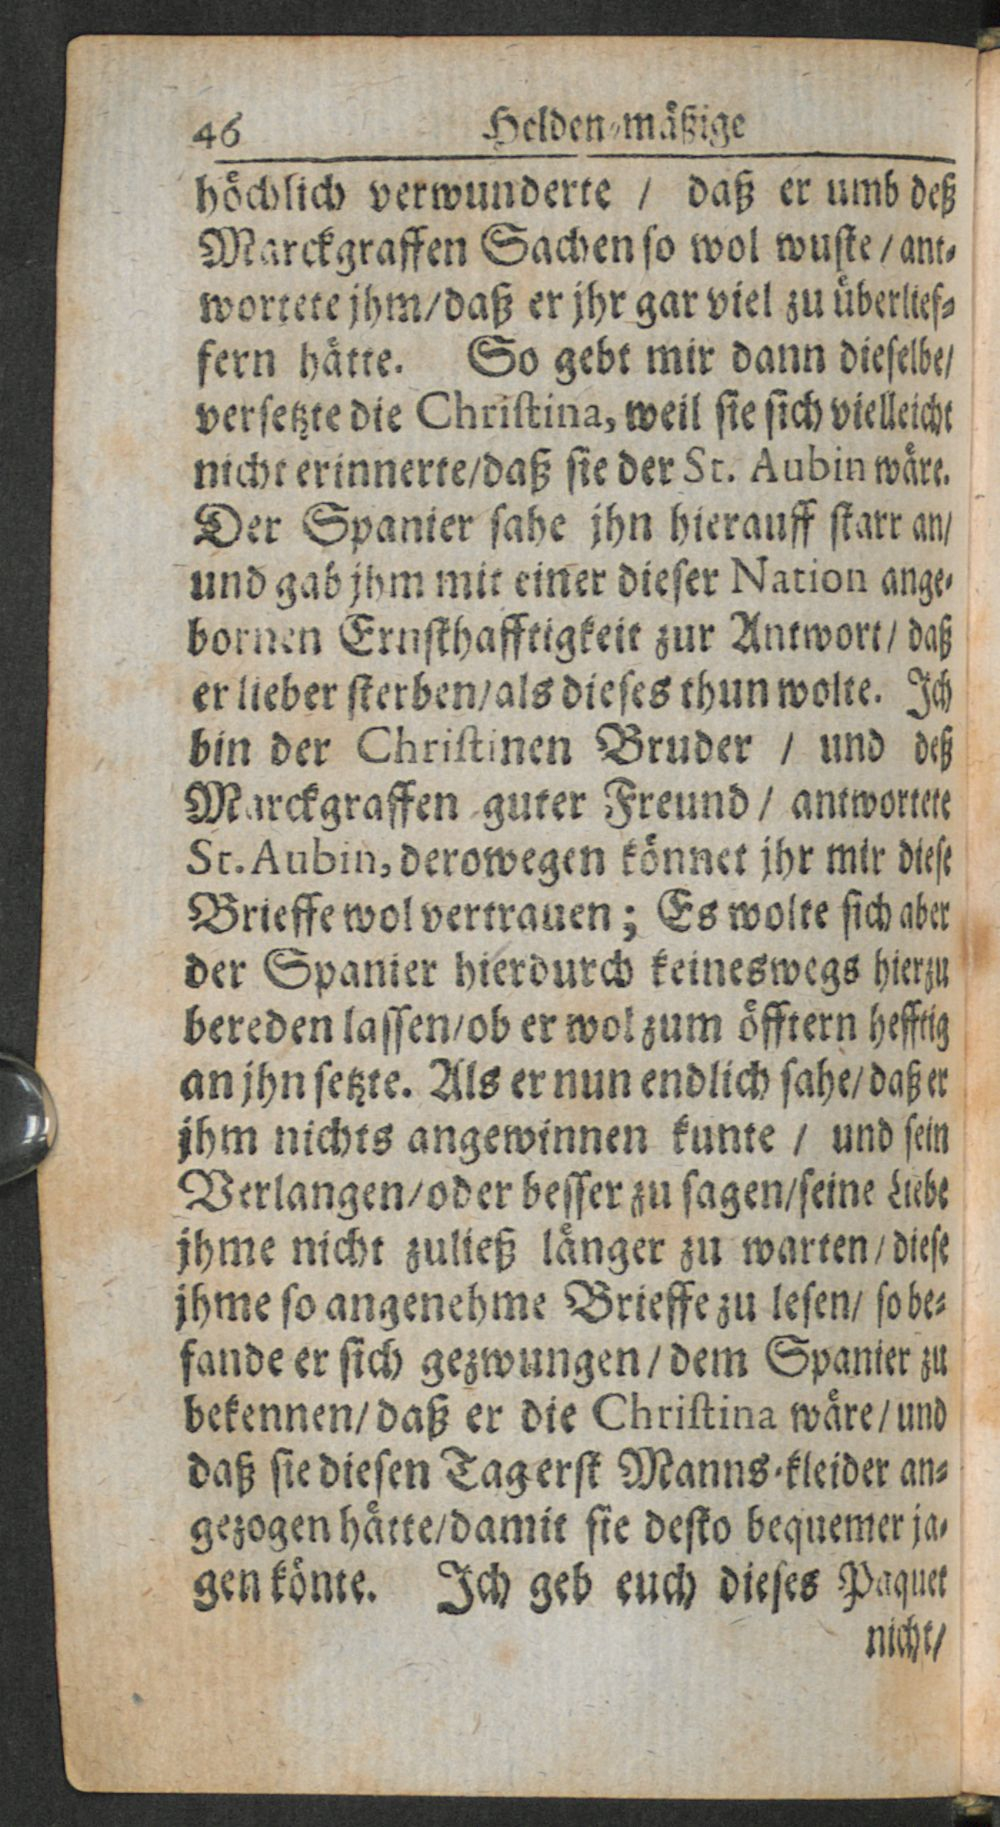 46 Helden-mäßige
höchlich verwunderte / daß er umb deß
Marckgraffen Sachen so wol wuste / ant-
wortete jhm / daß er jhr gar viel zu überlief-
fern hätte. So gebt mir dann dieselbe /
versetzte die Christina, weil sie sich vielleicht
nicht erinnerte / daß sie der St. Aubin wäre.
Der Spanier sahe jhn hierauff starr an /
und gab jhm mit einer dieser Nation ange-
bornen Ernsthafftigkeit zur Antwort / daß
er lieber sterben / als dieses thun wolte. Ich
bin der Christinen Bruder / und deß
Marckgraffen guter Freund / antwortete
St. Aubin, derowegen könnet jhr mir diese
Brieffe wol vertrauen; Es wolte sich aber
der Spanier hierdurch keineswegs hierzu
bereden lassen / ob er wol zum öfftern hefftig
an jhn setzte. Als er nun endlich sahe / daß er
jhm nichts angewinnen kunte / und sein
Verlangen / oder besser zu sagen / seine Liebe
jhme nicht zuließ länger zu warten / diese
jhme so angenehme Brieffe zu lesen / so be-
fande er sich gezwungen / dem Spanier zu
bekennen / daß er die Christina wäre / und
daß sie diesen Tag erst Manns-kleider an-
gezogen hätte / damit sie desto bequemer ja-
gen könte. Ich geb euch dieses Paquet
nicht /